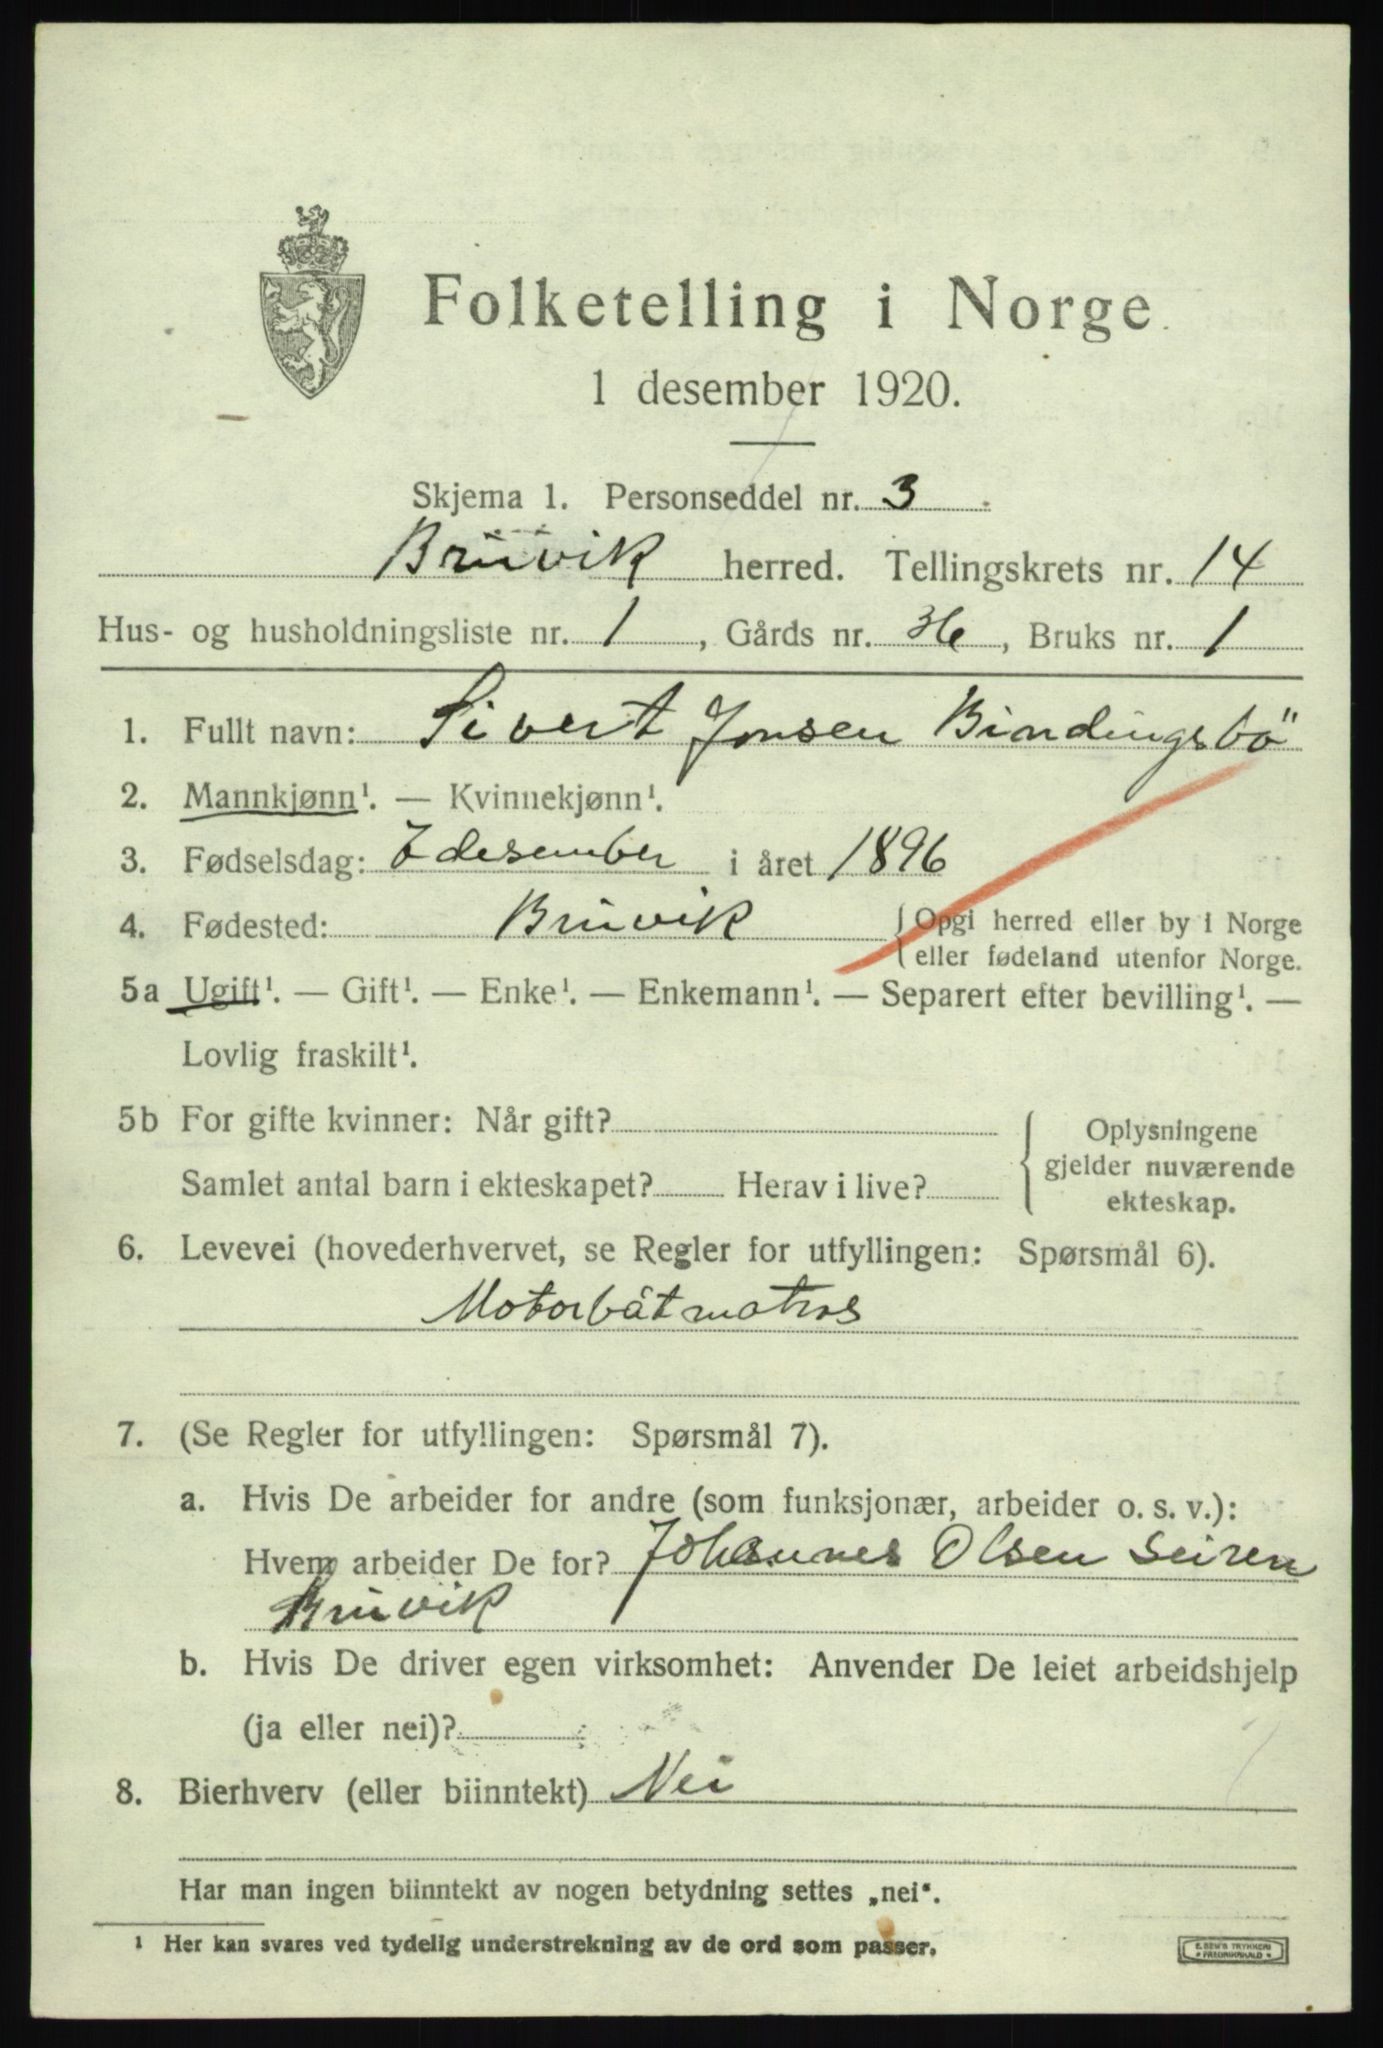 Folketelling i Norge
1 desember 1920.
Skjema 1. Personseddel nr. 3
Bruvik herred. Tellingskrets nr. 14
Hus- og husholdningsliste nr. 1, Gårds nr. 36, Bruks nr. 1
1. Fullt navn: Sivert Jonsen Bindingsbö
2. Mannkjønn¹. — Kvinnekjønn¹.
3. Fødselsdag: 7 desember i året 1896
4. Fødested: Bruvik { Opgi herred eller by i Norge
eller fødeland utenfor Norge.
5a Ugift¹. — Gift¹. — Enke¹. — Enkemann¹. — Separert efter bevilling¹. —
Lovlig fraskilt¹.
5b For gifte kvinner: Når gift?
Samlet antal barn i ekteskapet? Herav i live?
{ Oplysningene
gjelder nuværende
ekteskap.
6. Levevei (hovederhvervet, se Regler for utfyllingen: Spørsmål 6).
Motorbåtmatros
7. (Se Regler for utfyllingen: Spørsmål 7).
a. Hvis De arbeider for andre (som funksjonær, arbeider o. s. v.):
Hvem arbeider De for? Johannes Olsen Seiren
Bruvik
b. Hvis De driver egen virksomhet: Anvender De leiet arbeidshjelp
(ja eller nei)?
8. Bierhverv (eller biinntekt) Nei
Har man ingen biinntekt av nogen betydning settes „nei“.
¹ Her kan svares ved tydelig understrekning av de ord som passer.
E. SEM'S TRYKKERI
FREDRIKSHALD